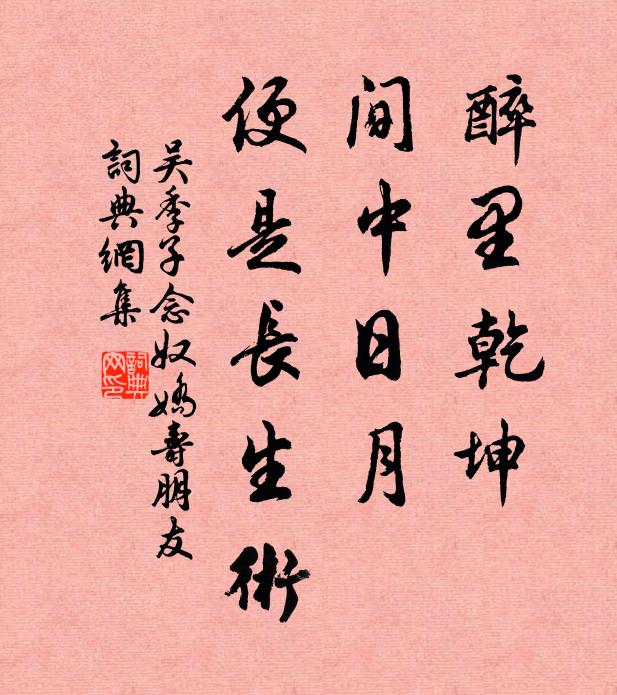 醉里乾坤
間中日月
便是長生術
吴季子念奴嬌壽朋友
詞典網集
詞典网印